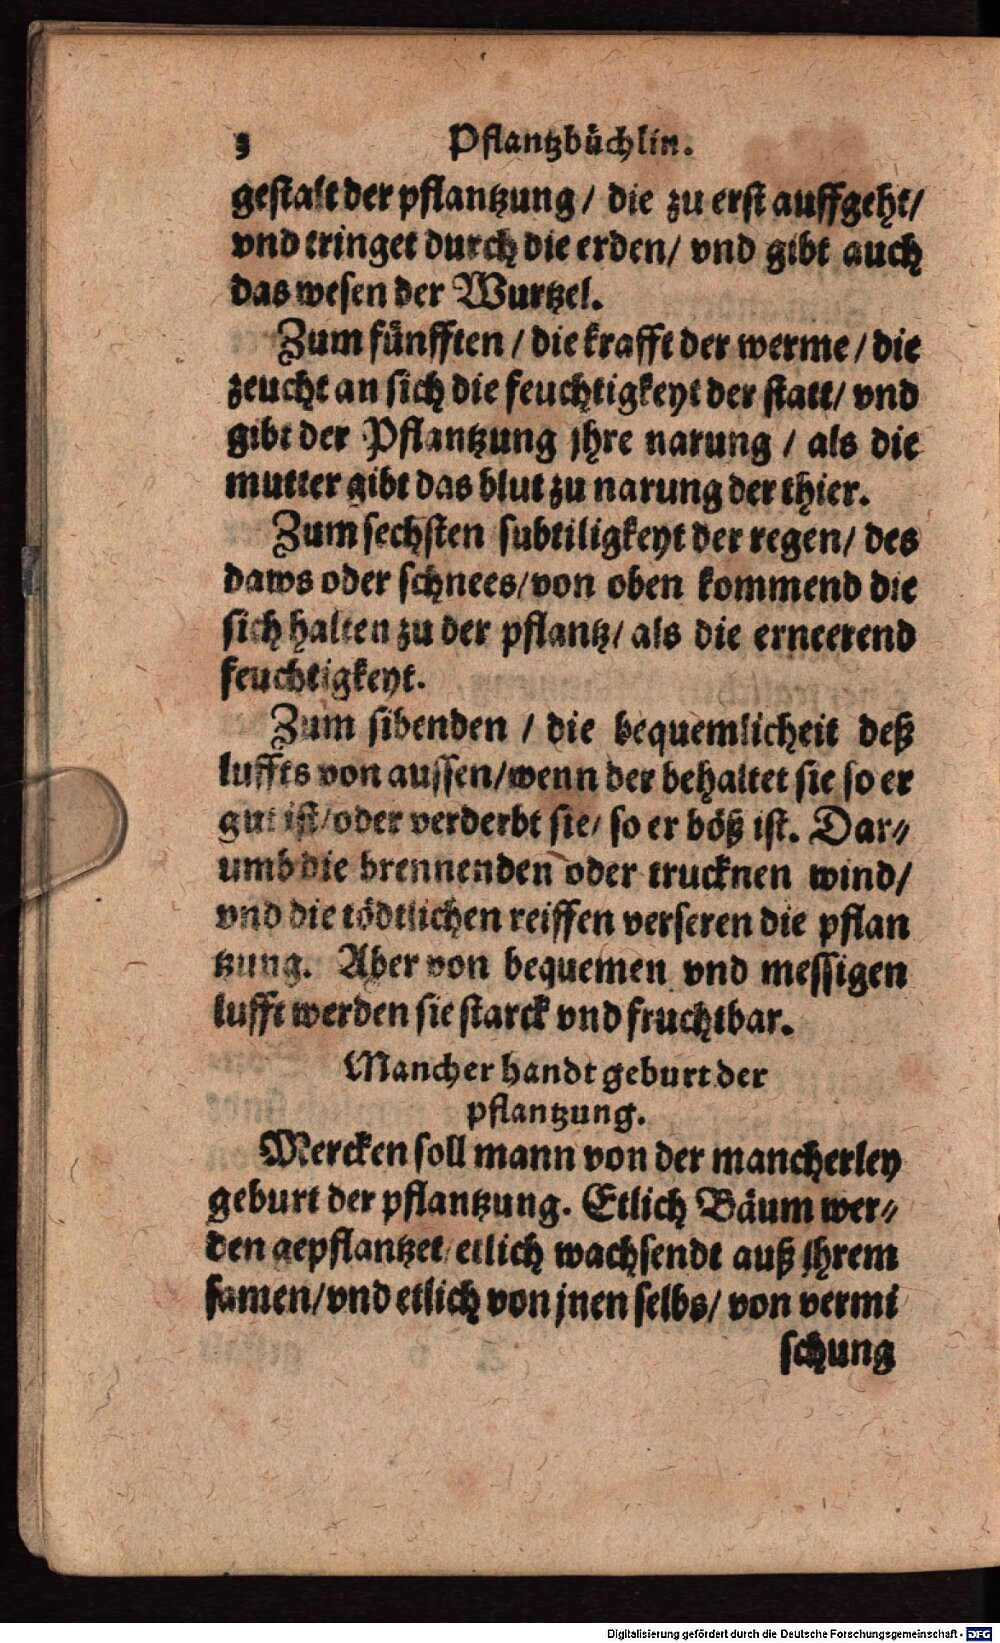 3 Pflantzbüchlin.
gestalt der pflantzung/ die zu erst auffgeht/
vnd tringet durch die erden/ vnd gibt auch
das wesen der Wurtzel.
Zum fünfften / die krafft der werme / die
zeucht an sich die feuchtigkeyt der statt/ vnd
gibt der Pflantzung jhre narung / als die
mutter gibt das blut zu narung der thier.
Zum sechsten subtiligkeyt der regen/ des
daws oder schnees/ von oben kommend die
sich halten zu der pflantz/ als die erneerend
feuchtigkeyt.
Zum sibenden / die bequemlicheit deß
luffts von aussen/ wenn der behaltet sie so er
gut ist/ oder verderbt sie/ so er böß ist. Dar⸗
umb die brennenden oder trucknen wind/
vnd die tödtlichen reiffen verseren die pflan
tzung. Aber von bequemen vnd messigen
lufft werden sie starck vnd fruchtbar.
Mancher handt geburt der
pflantzung.
Mercken soll mann von der mancherley
geburt der pflantzung. Etlich Bäum wer⸗
den gepflantzet/ etlich wachsendt auß jhrem
samen/ vnd etlich von jnen selbs/ von vermi
schung
Digitalisierung gefördert durch die Deutsche Forschungsgemeinschaft - DFG